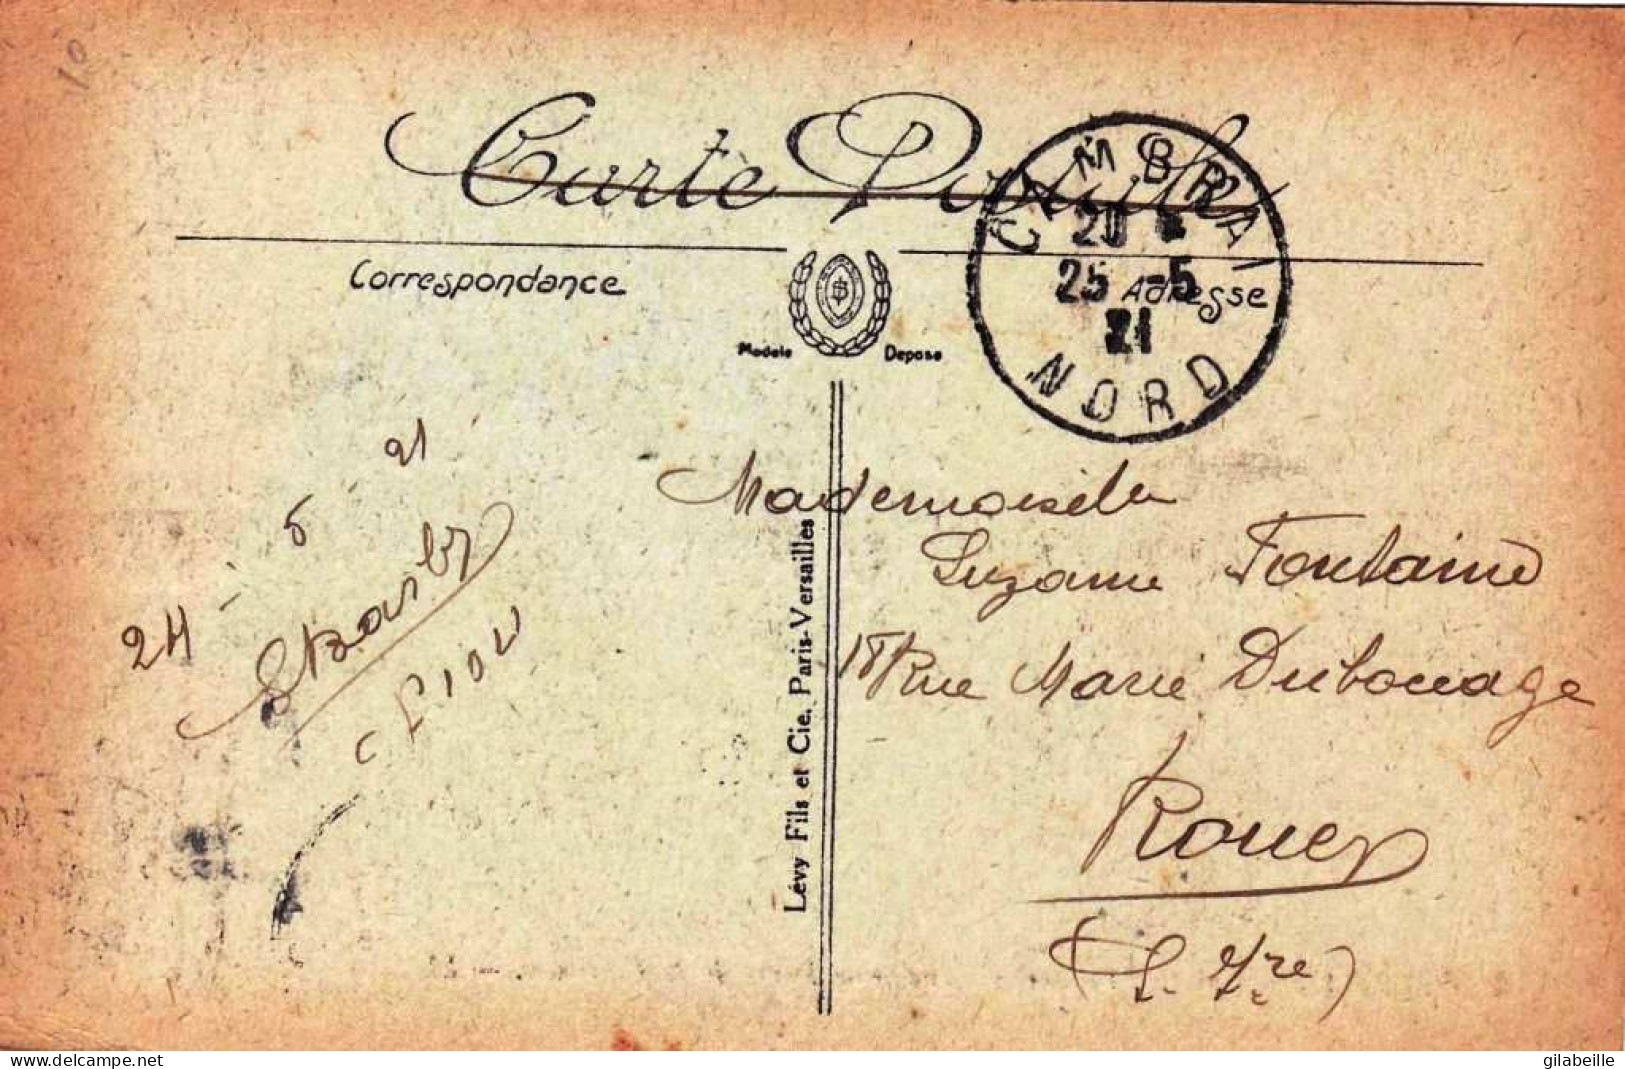 10
Carte Postale
Correspondance
Adresse
Modèle Déposé
CAMBRAI
20
25 -5
21
NORD
24 - 5 - 21
Mademoiselle
Suzanne Fontaine
18 Rue Marie Dubocage
Rouen
(S. Ifre)
Lévy Fils et Cie, Paris-Versailles
delcampe.net
gilabeille